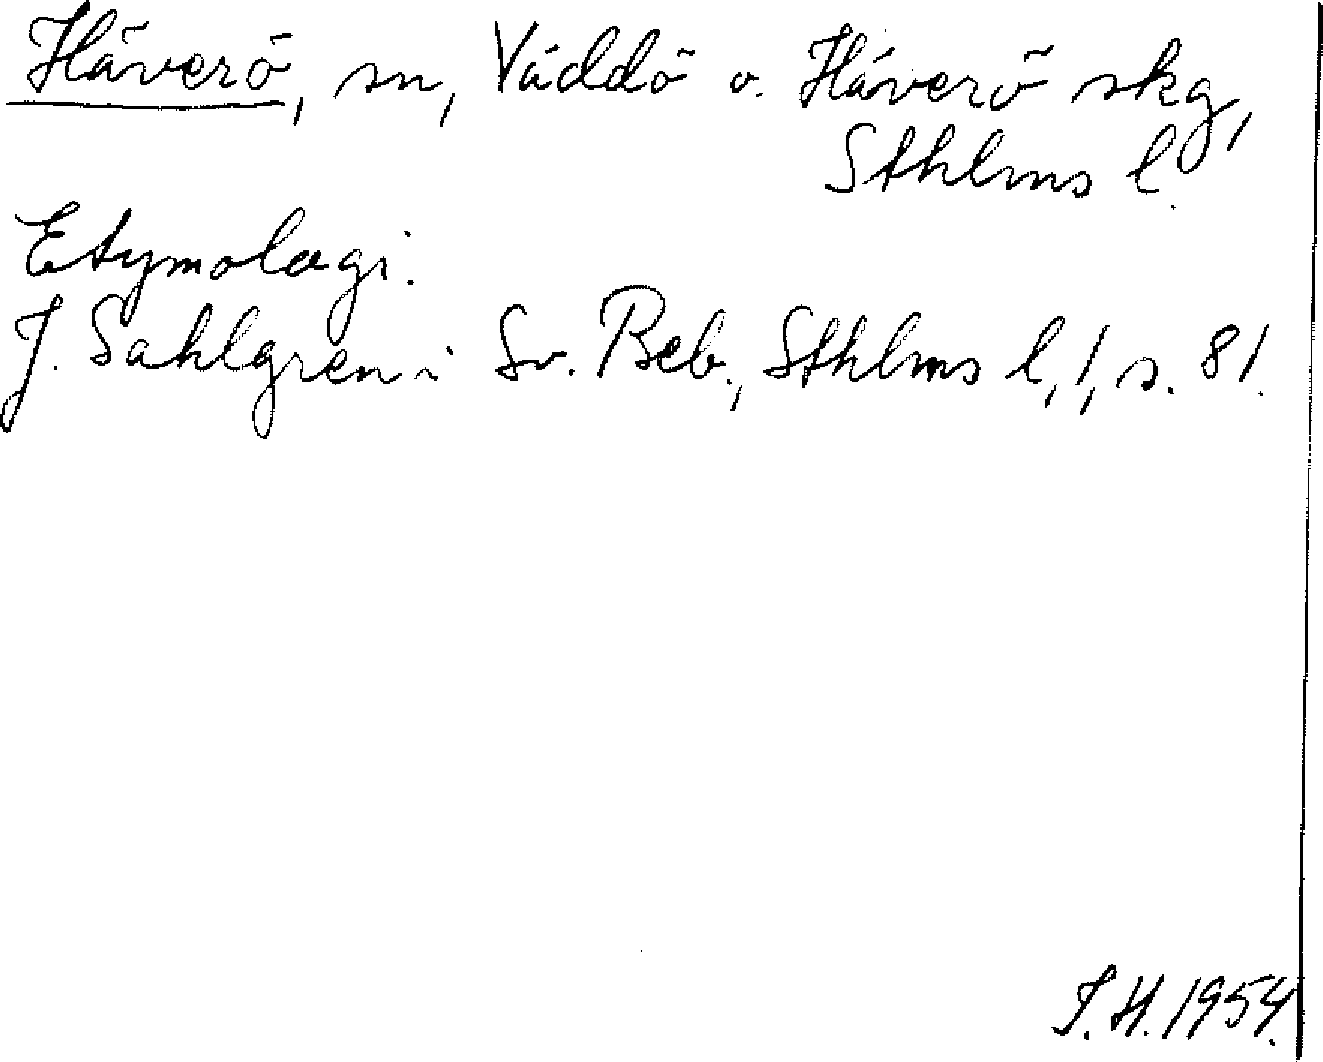 Häverö, sn, Väddö o. Häverö skg,
Sthlms l.
Etymologi.
J. Sahlgren i Sv. Beb., Sthlms l, 1, s. 81.
S.H. 1954.